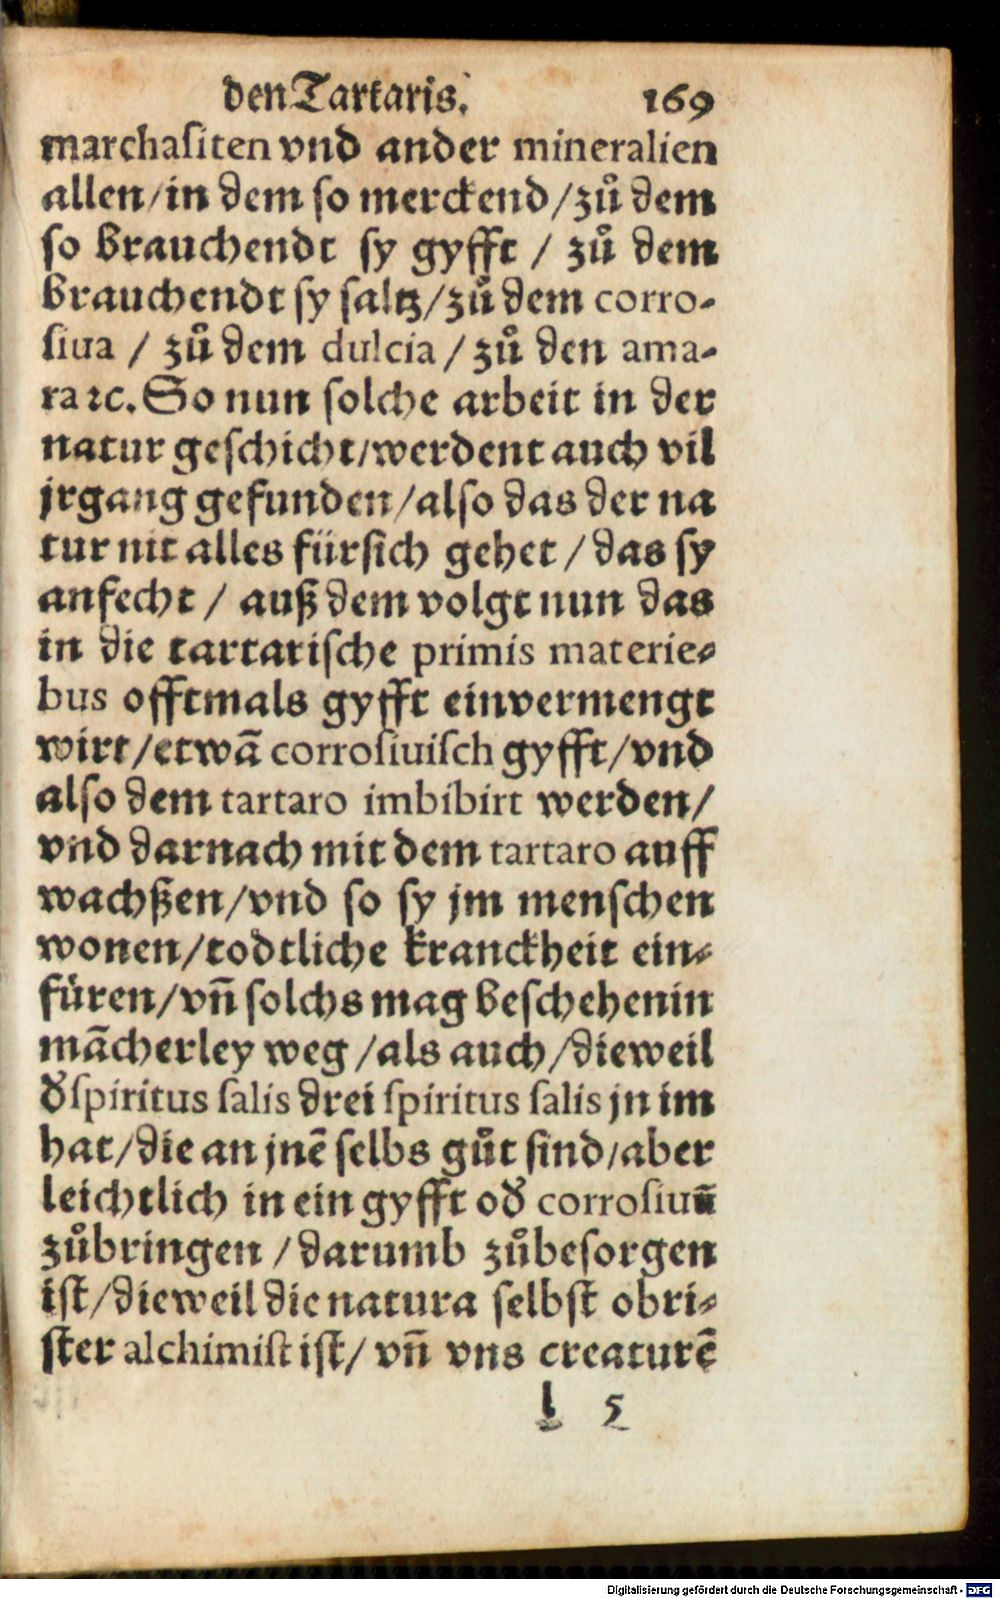 den Tartaris. 169
marchasiten vnd ander mineralien
allen/in dem so merckend/zů dem
so brauchendt sy gyfft / zů dem
brauchendt sy saltz/zů dem corro-
siua / zů dem dulcia / zů den ama-
ra ⁊c. So nun solche arbeit in der
natur geschicht/werdent auch vil
jrgang gefunden/also das der na
tur nit alles fürsich gehet / das sy
anfecht / auß dem volgt nun das
in die tartarische primis materie-
bus offtmals gyfft einvermengt
wirt/etwā corrosiuisch gyfft/vnd
also dem tartaro imbibirt werden/
vnd darnach mit dem tartaro auff
wachßen/vnd so sy jm menschen
wonen/todtliche kranckheit ein-
füren/vn̄ solchs mag beschehenin
mācherley weg /als auch/dieweil
d̕ spiritus salis drei spiritus salis jn im
hat/die an jnē selbs gůt sind/aber
leichtlich in ein gyfft od̕ corrosiuū
zůbringen /darumb zůbesorgen
ist/dieweil die natura selbst obri-
ster alchimist ist/ vn̄ vns creaturē
l 5
Digitalisierung gefördert durch die Deutsche Forschungsgemeinschaft - DFG